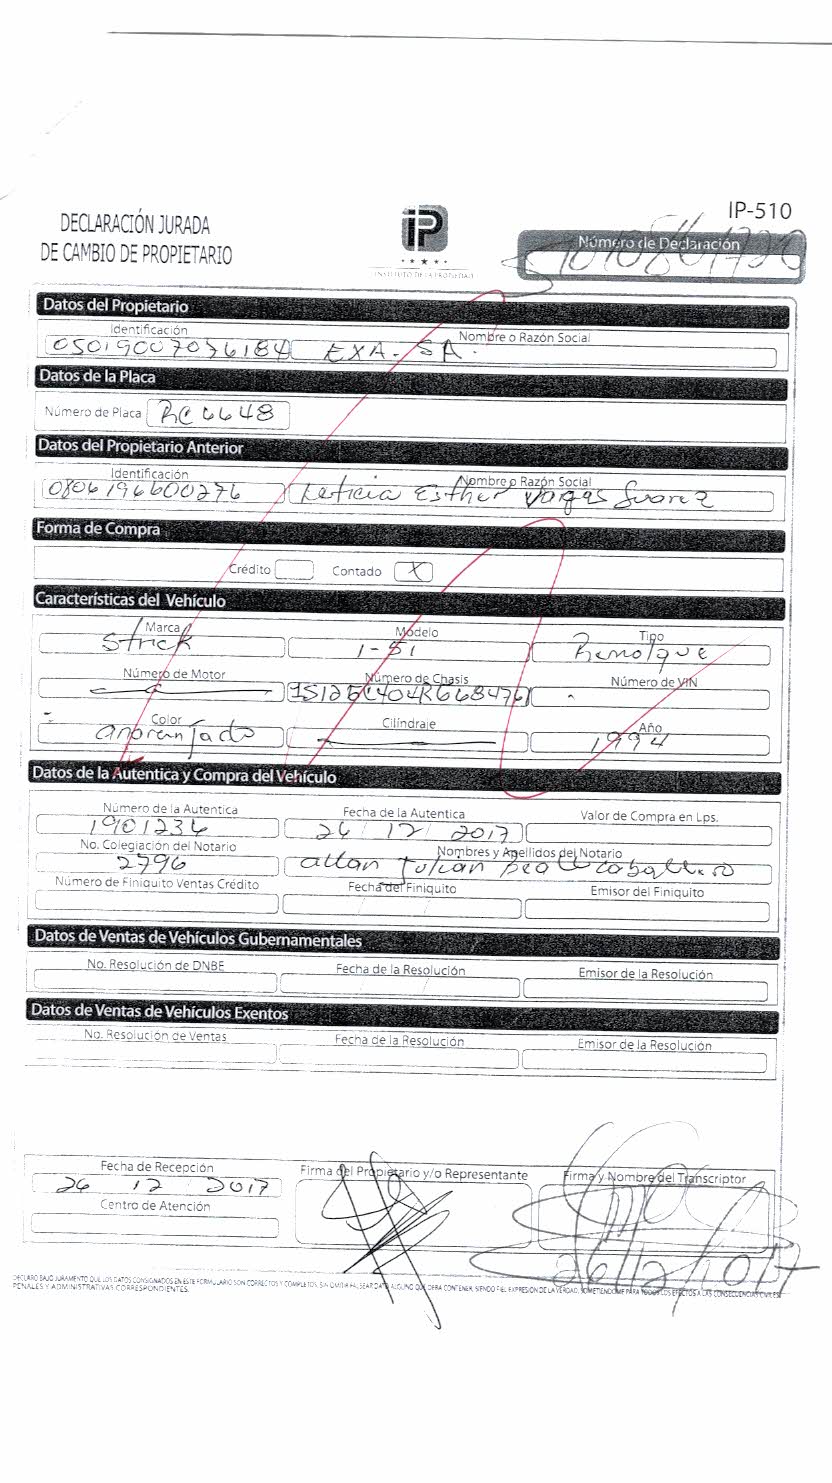 IP-510
DECLARACIÓN JURADA
DE CAMBIO DE PROPIETARIO
iP
INSTITUTO DE LA PROPIEDAD
Número de Declaración
Datos del Propietario
Identificación Nombre o Razón Social
05019007076184 EXA. SA.
Datos de la Placa
Número de Placa RC6648
Datos del Propietario Anterior
Identificación Nombre o Razón Social
0806196600276 Leticia Esther Vargas Suarez
Forma de Compra
Crédito Contado X
Características del Vehículo
Marca Modelo Tipo
Strick 1-S1 Remolque
Número de Motor Número de Chasis Número de VIN
Color Cilíndraje Año
anorenjado 1994
Datos de la Autentica y Compra del Vehículo
Número de la Autentica Fecha de la Autentica Valor de Compra en Lps.
1901234 26 / 12 / 2017
No. Colegiación del Notario Nombres y Apellidos del Notario
2796 allan Julian
Número de Finiquito Ventas Crédito Fecha del Finiquito Emisor del Finiquito
Datos de Ventas de Vehículos Gubernamentales
No. Resolución de DNBE Fecha de la Resolución Emisor de la Resolución
Datos de Ventas de Vehículos Exentos
No. Resolución de Ventas Fecha de la Resolución Emisor de la Resolución
Fecha de Recepción Firma del Propietario y/o Representante Firma y Nombre del Transcriptor
26 12 2017
Centro de Atención
26/12/2017
DECLARO BAJO JURAMENTO QUE LOS DATOS CONSIGNADOS EN ESTE FORMULARIO SON CORRECTOS Y COMPLETOS, SIN OMITIR FALSEAR DATO ALGUNO QUE DEBA CONTENER, SIENDO FIEL EXPRESION DE LA VERDAD, SOMETIENDOME PARA TODOS LOS EFECTOS A LAS CONSECUENCIAS CIVILES
PENALES Y ADMINISTRATIVAS CORRESPONDIENTES.